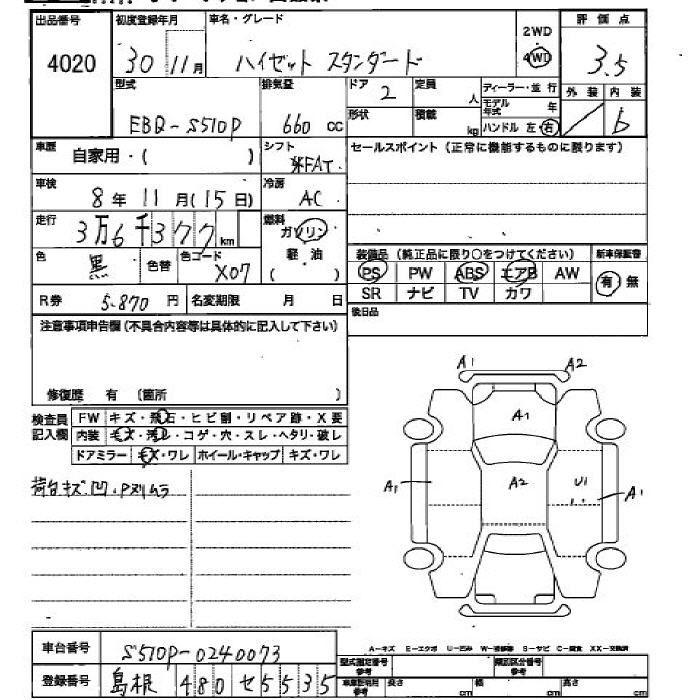 出品番号 初度登録年月 車名・グレード 2WD 評価点
4020 30 11月 ハイゼット スタンダード 4WD 3.5
型式 排気量 ドア 2 定員 人 ディーラー・並行 外装 内装
EBD-S510P 660 cc 形状 積載 kg モデル年式 年 b
ハンドル 左・右
車歴 自家用・( ) シフト セールスポイント(正常に機能するものに限ります)
FAT
車検 8年11月(15日) 冷房 AC
走行 3万6千377km 燃料 ガソリン
軽・油
( )
色 黒 色替 色コード X07
装備品(純正品に限り○をつけてください) 新車保証書
PS PW ABS エアB AW 有・無
SR ナビ TV カワ
R券 5.870円 名変期限 月 日 後日品
注意事項申告欄(不具合内容等は具体的に記入して下さい)
修復歴 有 (箇所 )
検査員記入欄 FW キズ・飛石・ヒビ割・リペア跡・X要
内装 キズ・汚れ・コゲ・穴・スレ・ヘタリ・破レ
ドアミラー キズ・ワレ ホイール・キャップ キズ・ワレ
荷台キズ凹・Pヌリムラ
A1 A2
A1
A1 A2 U1 A1
車台番号 S510P-0240073
登録番号 島根 480 セ 5535
A-キズ E-エクボ U-凹み S-サビ C-腐食 XX-交換済
型式指定番号 参考 類別区分番号 参考
長さ cm 幅 cm 高さ cm